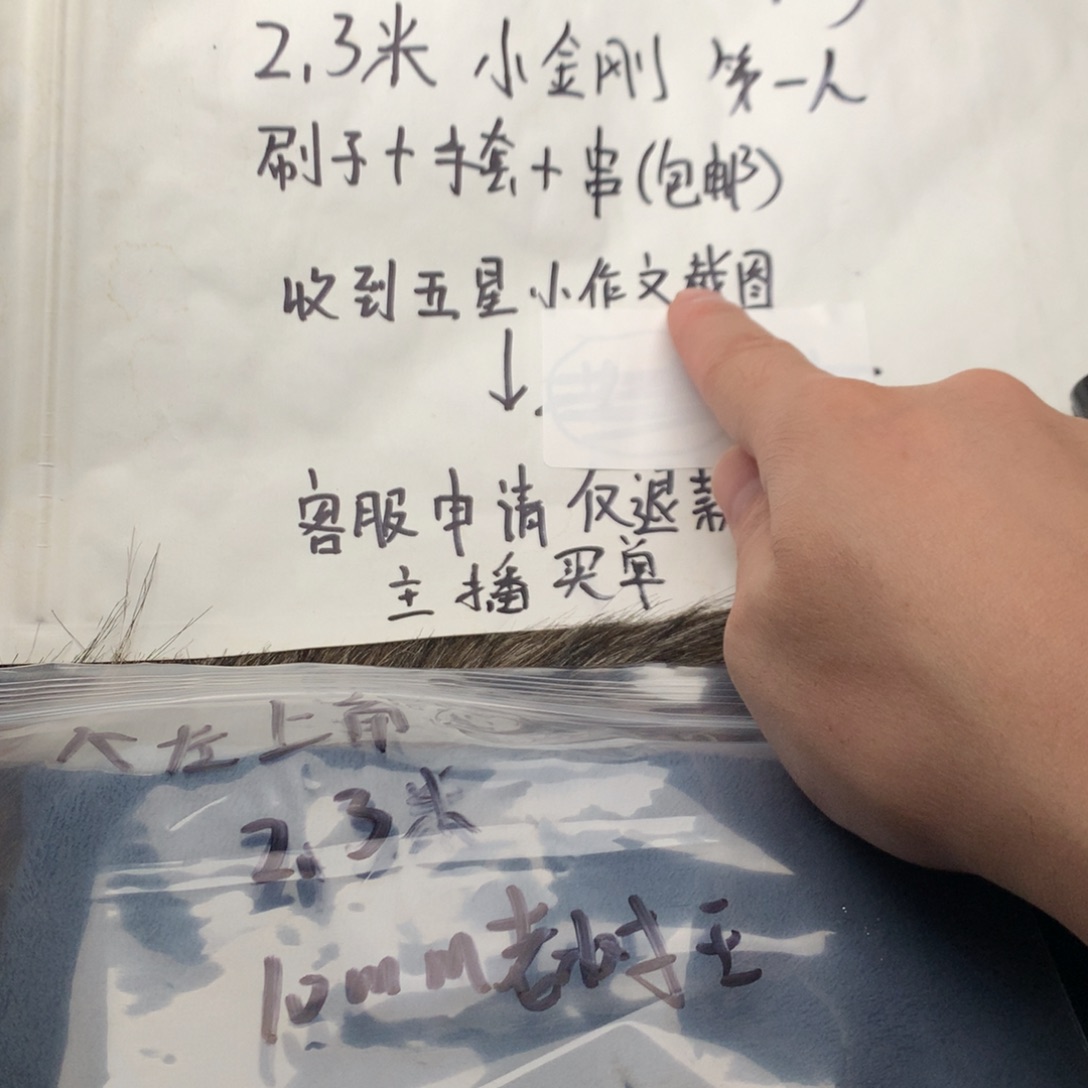 2,3米 小金刚 第一人
刷子+手套+串(包邮)
收到五星小作文截图
↓
客服申请仅退款
主播买单
左上角
2,3米
10mm老树王